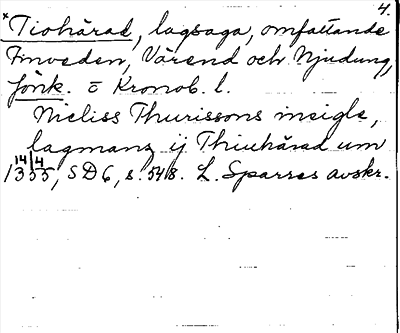 4.
*Tiohärad, lagsaga, omfattande
Finveden, Värend och Njudung,
Jönk. o Kronob. l.
Nicliss Thurissons incigle,
lagmanz ij Thiuhärad um
14/4 1355, SD 6, s. 548. L. Sparres avskr.